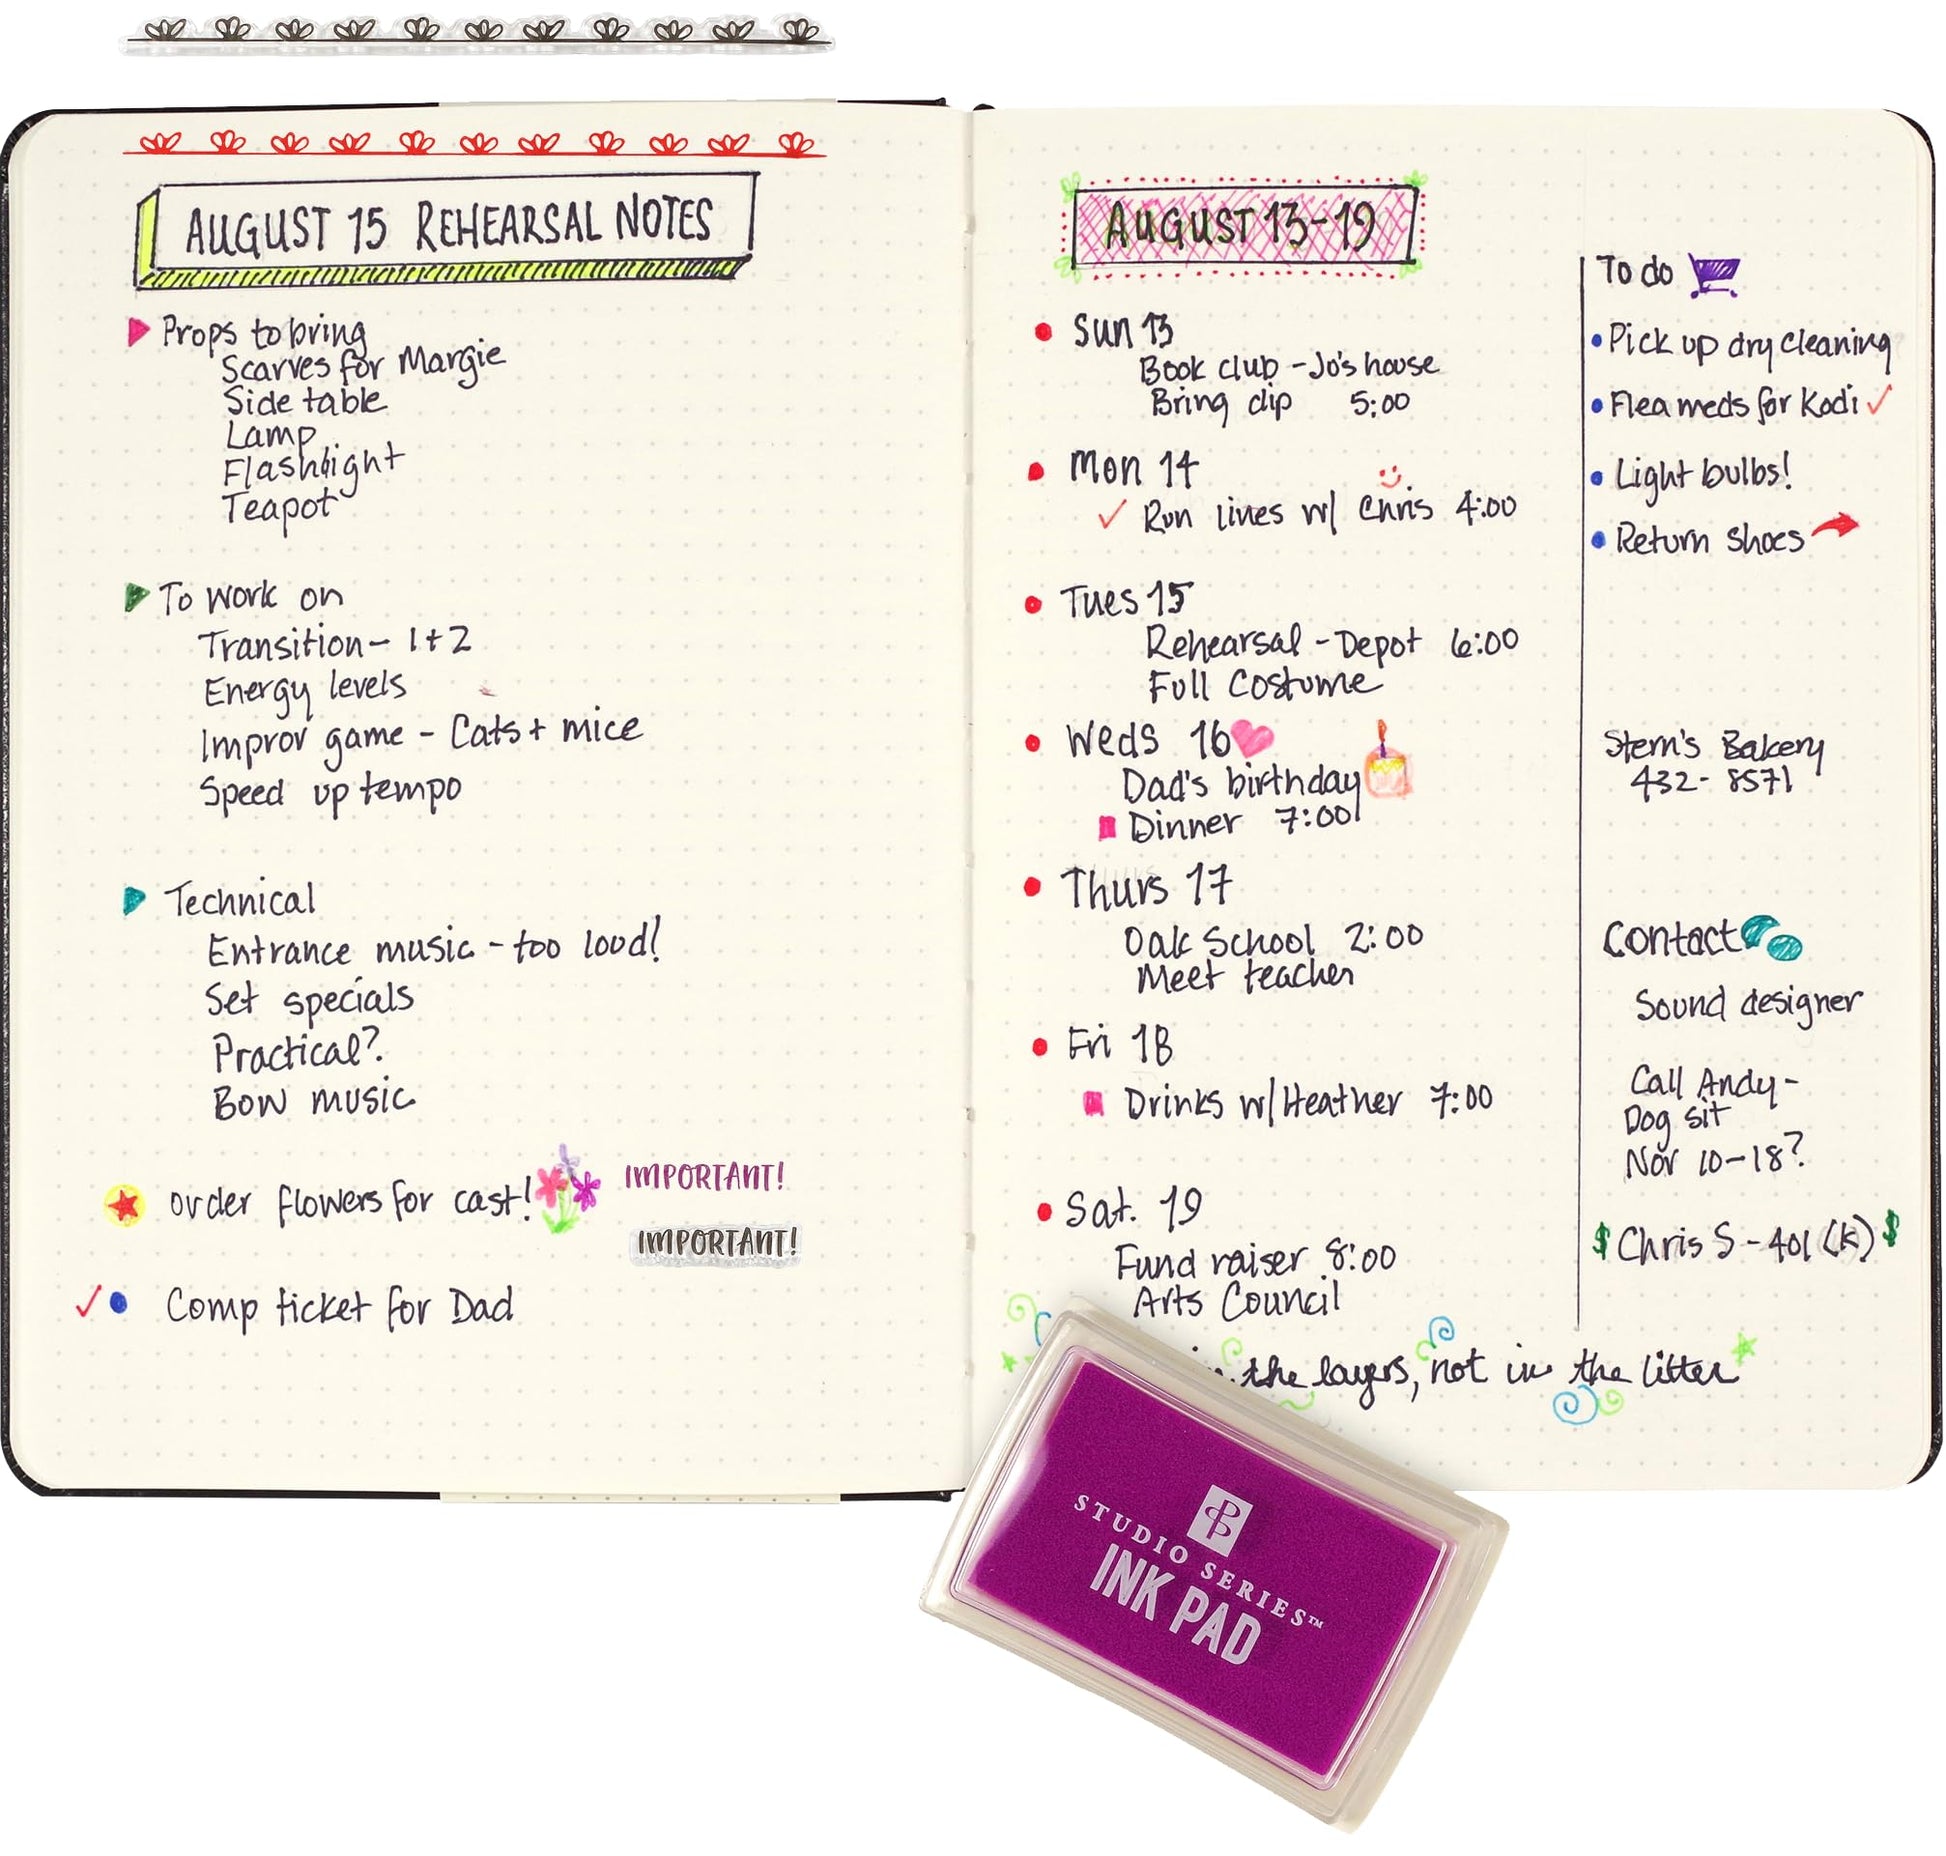 AUGUST 15 REHEARSAL NOTES
Props to bring
Scarves for Margie
Side table
Lamp
Flashlight
Teapot
To work on
Transition - 1+2
Energy levels
Improv game - Cats + mice
Speed up tempo
Technical
Entrance music - too loud!
Set specials
Practical?
Bow music
order flowers for cast!
IMPORTANT!
IMPORTANT!
Comp ticket for Dad
AUGUST 13-19
Sun 13
Book club - Jo's house
Bring dip 5:00
Mon 14
Run lines w/ Chris 4:00
Tues 15
Rehearsal - Depot 6:00
Full Costume
Weds 16
Dad's birthday
Dinner 7:00
Thurs 17
Oak School 2:00
Meet teacher
Fri 18
Drinks w/ Heather 7:00
Sat. 19
Fund raiser 8:00
Arts Council
the layers, not in the litter
To do
Pick up dry cleaning
Flea meds for Kodi
Light bulbs!
Return shoes
Stern's Bakery
432-8571
Contact
Sound designer
Call Andy-
Dog sit
Nov 10-18?
$ Chris S - 401(k) $
STUDIO SERIES™
INK PAD